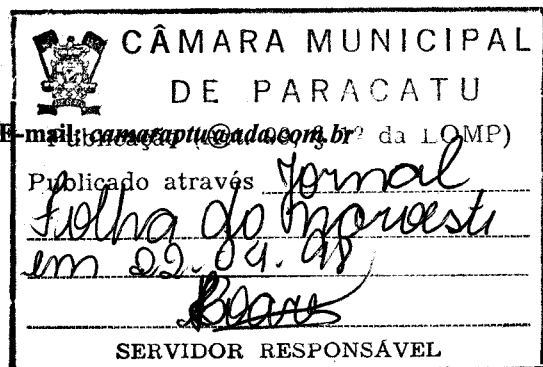 CÂMARA MUNICIPAL
DE PARACATU
E-mail: camaraptu@ada.com.br
Publicação º da LOMP)
Publicado através Jornal
Folha do Noroeste
em 22.04.98
SERVIDOR RESPONSÁVEL